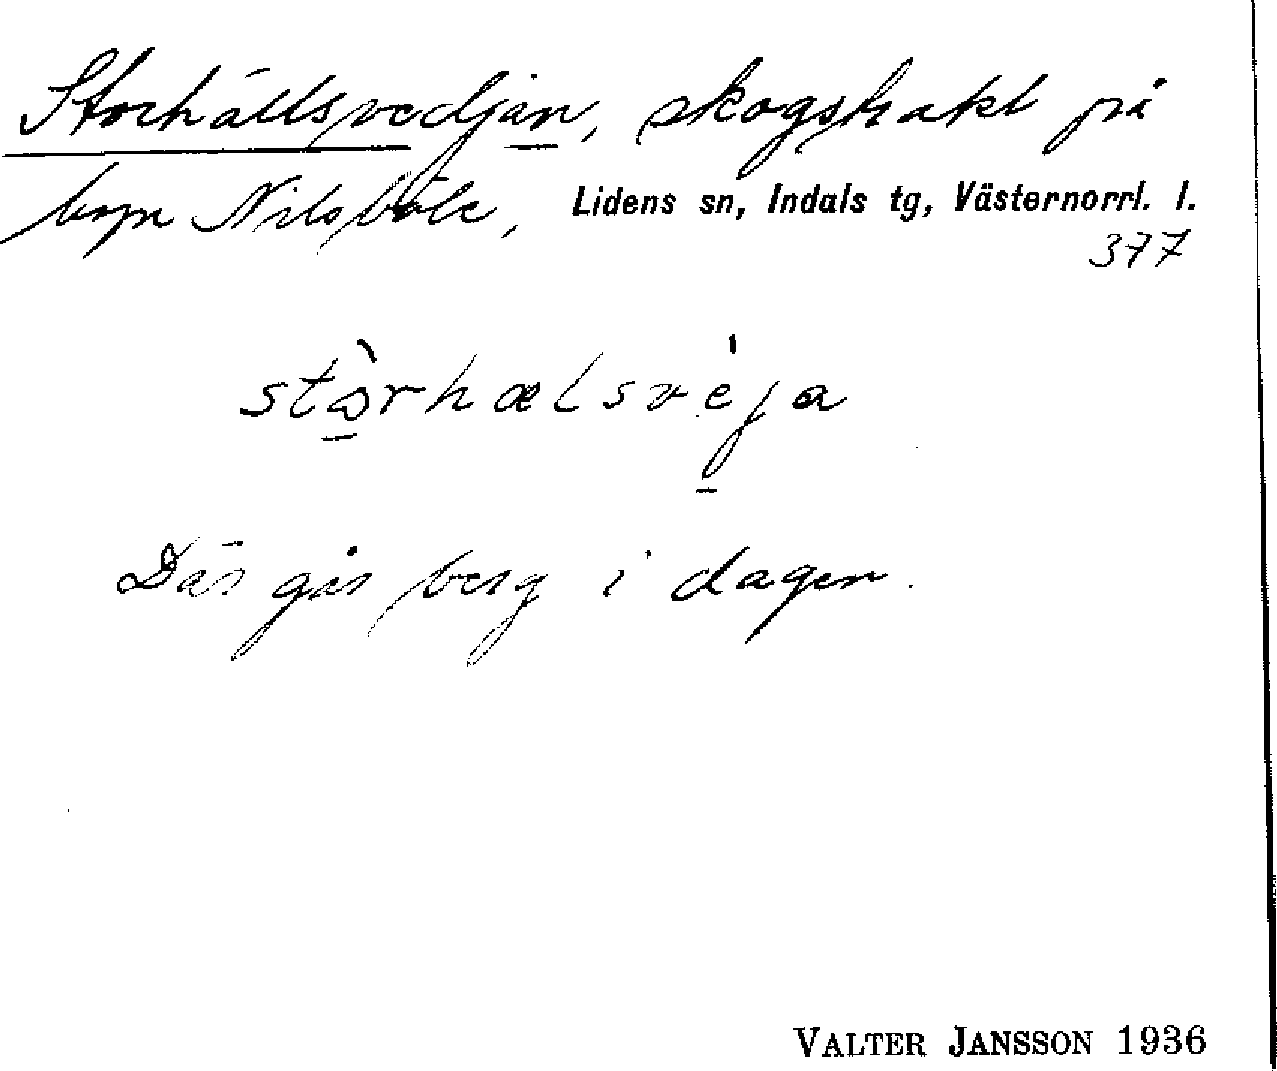 Storhällsvedjan, skogstrakt på
byn Nilsböle, Lidens sn, Indals tg, Västernorrl. l.
377
stòrhælsvèja
Där går berg i dagen.
VALTER JANSSON 1936